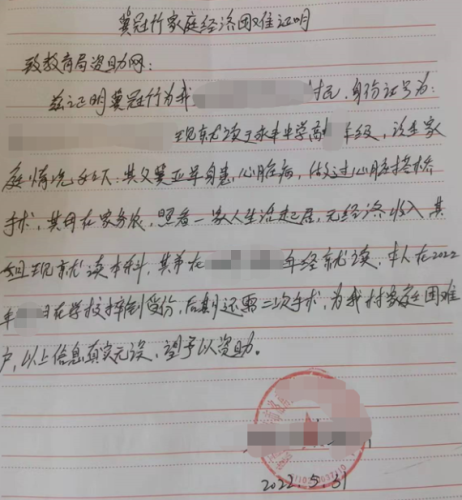 冀冠行家庭经济困难证明
致教育局资助网：
兹证明冀冠行为我 村民，身份证号为：
现就读于永丰中学高 年级，该生家
庭情况如下：其父冀亚军身患心脏病，做过心脏搭桥
手术，其母在家务农，照看一家人生活起居，无经济收入，其
姐现就读本科，其弟在 年级就读，本人在2022
年 在学校摔倒受伤，后期还需二次手术，为我村家庭困难
户，以上信息真实无误，望予以资助。
2022.5.31